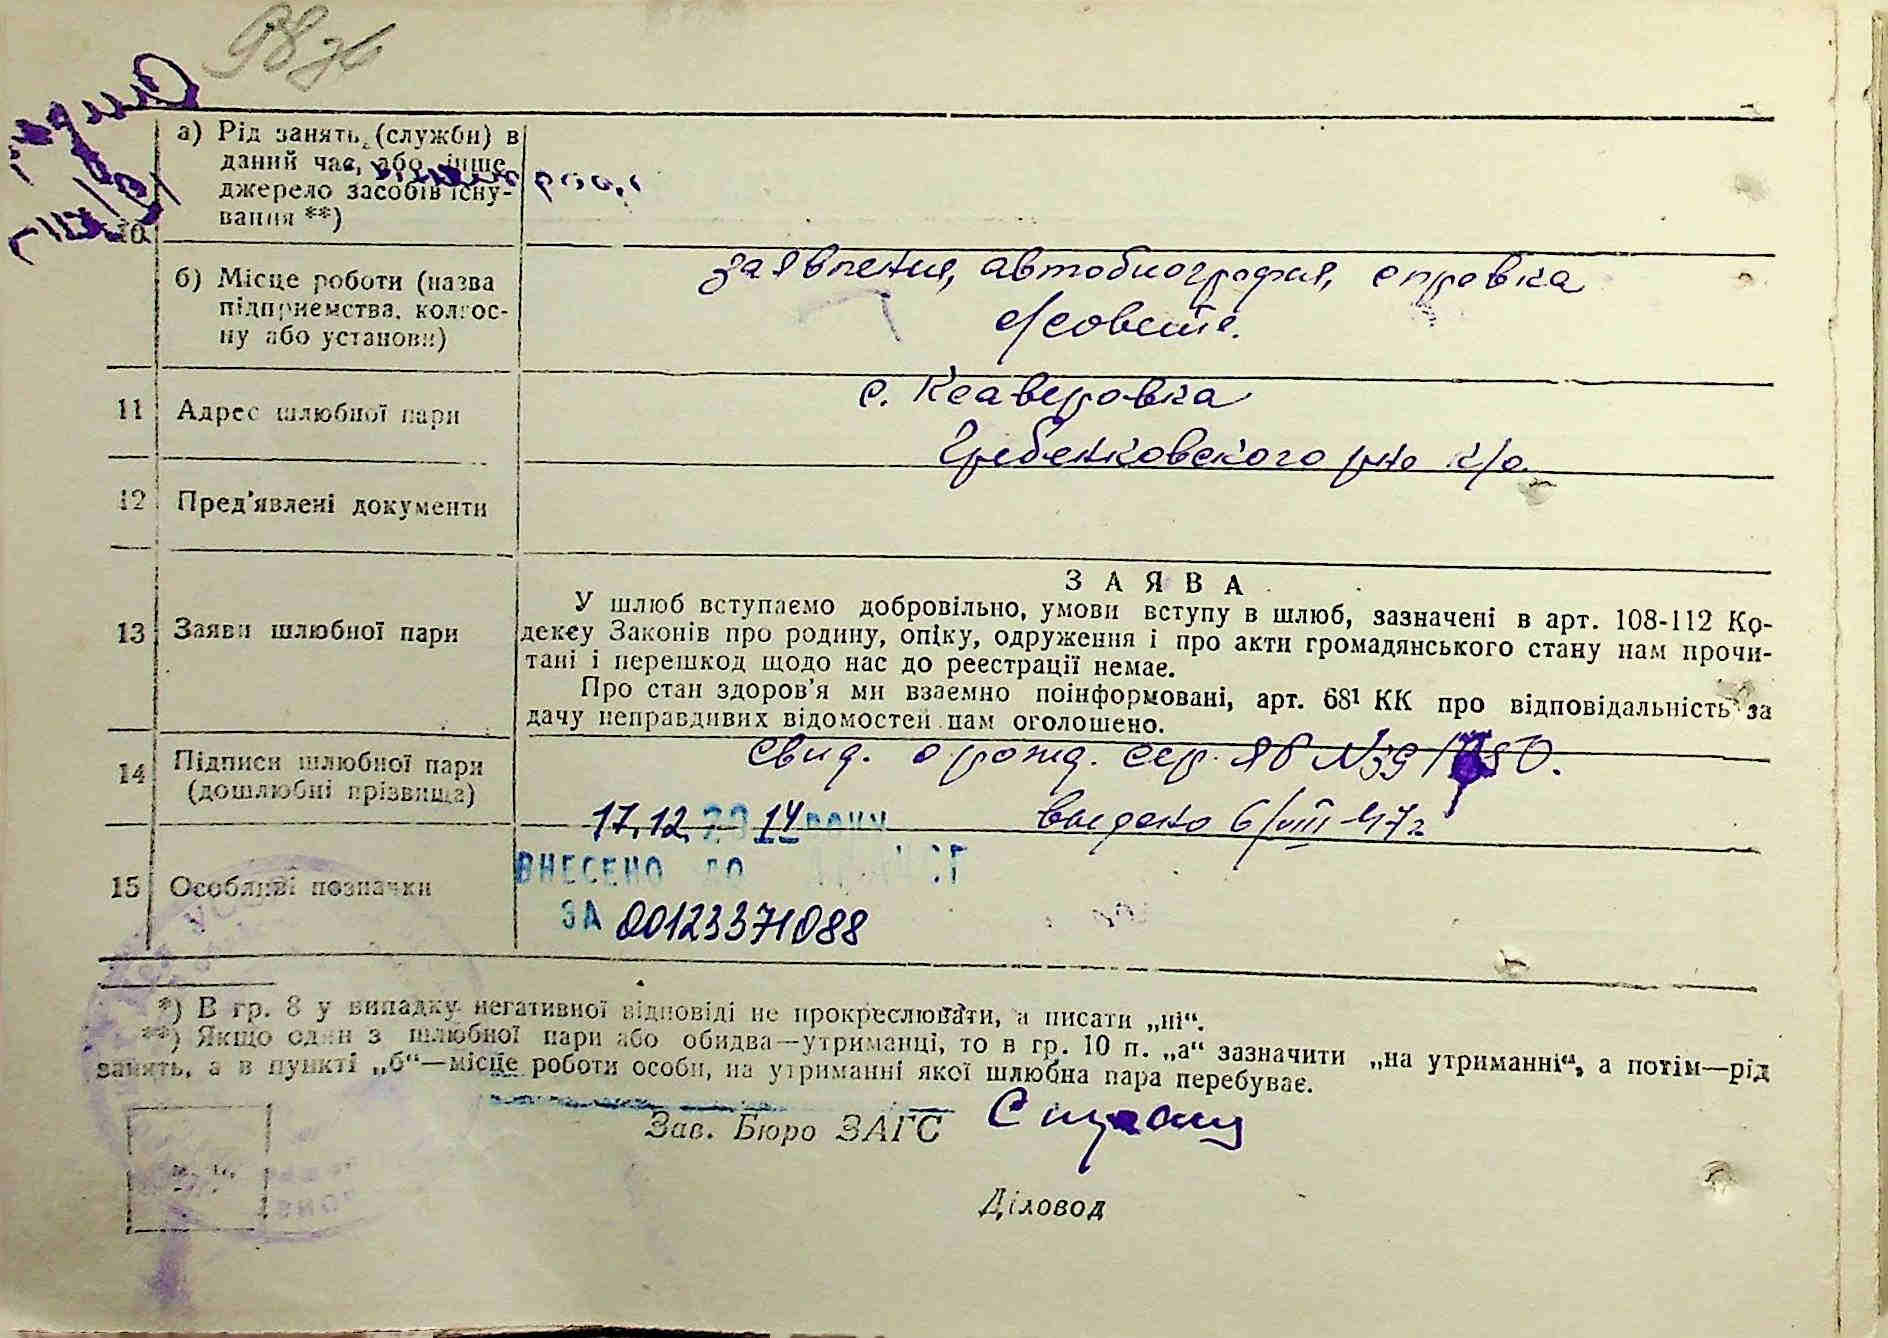 а) Рід занять (службн) в
даний час, або інше
джерело засобів існу-
вання **)
10
заявления, автобиография, справка
б) Місце роботи (назва
підприємства, колгос-
пу або установи)
с/совета.
с. Ксаверовка
11 Адрес шлюбної пари
Гребенковского р-на к/о
12 Пред'явлені документи
ЗАЯВА
13 Заяви шлюбної пари
У шлюб вступаємо добровільно, умови вступу в шлюб, зазначені в арт. 108-112 Ко-
дексу Законів про родину, опіку, одруження і про акти громадянського стану нам прочи-
тані і перешкод щодо нас до реєстрації немає.
Про стан здоров'я ми взаємно поінформовані, арт. 68¹ КК про відповідальність за
дачу неправдивих відомостей нам оголошено.
свид. о рожд. сер. ЯБ №
14 Підписи шлюбної пари
(дошлюбні прізвища)
17.12.2014 року
выдано 6/VIII-47г
ВНЕСЕНО ДО
15 Особливі позначки
ЗА 00123371088
*) В гр. 8 у випадку негативної відповіді не прокреслювати, а писати „ні“.
**) Якщо один з шлюбної пари або обидва—утриманці, то в гр. 10 п. „а“ зазначити „на утриманні“, а потім—рід
занять, а в пункті „б“—місце роботи особи, на утриманні якої шлюбна пара перебуває.
Зав. Бюро ЗАГС
Діловод